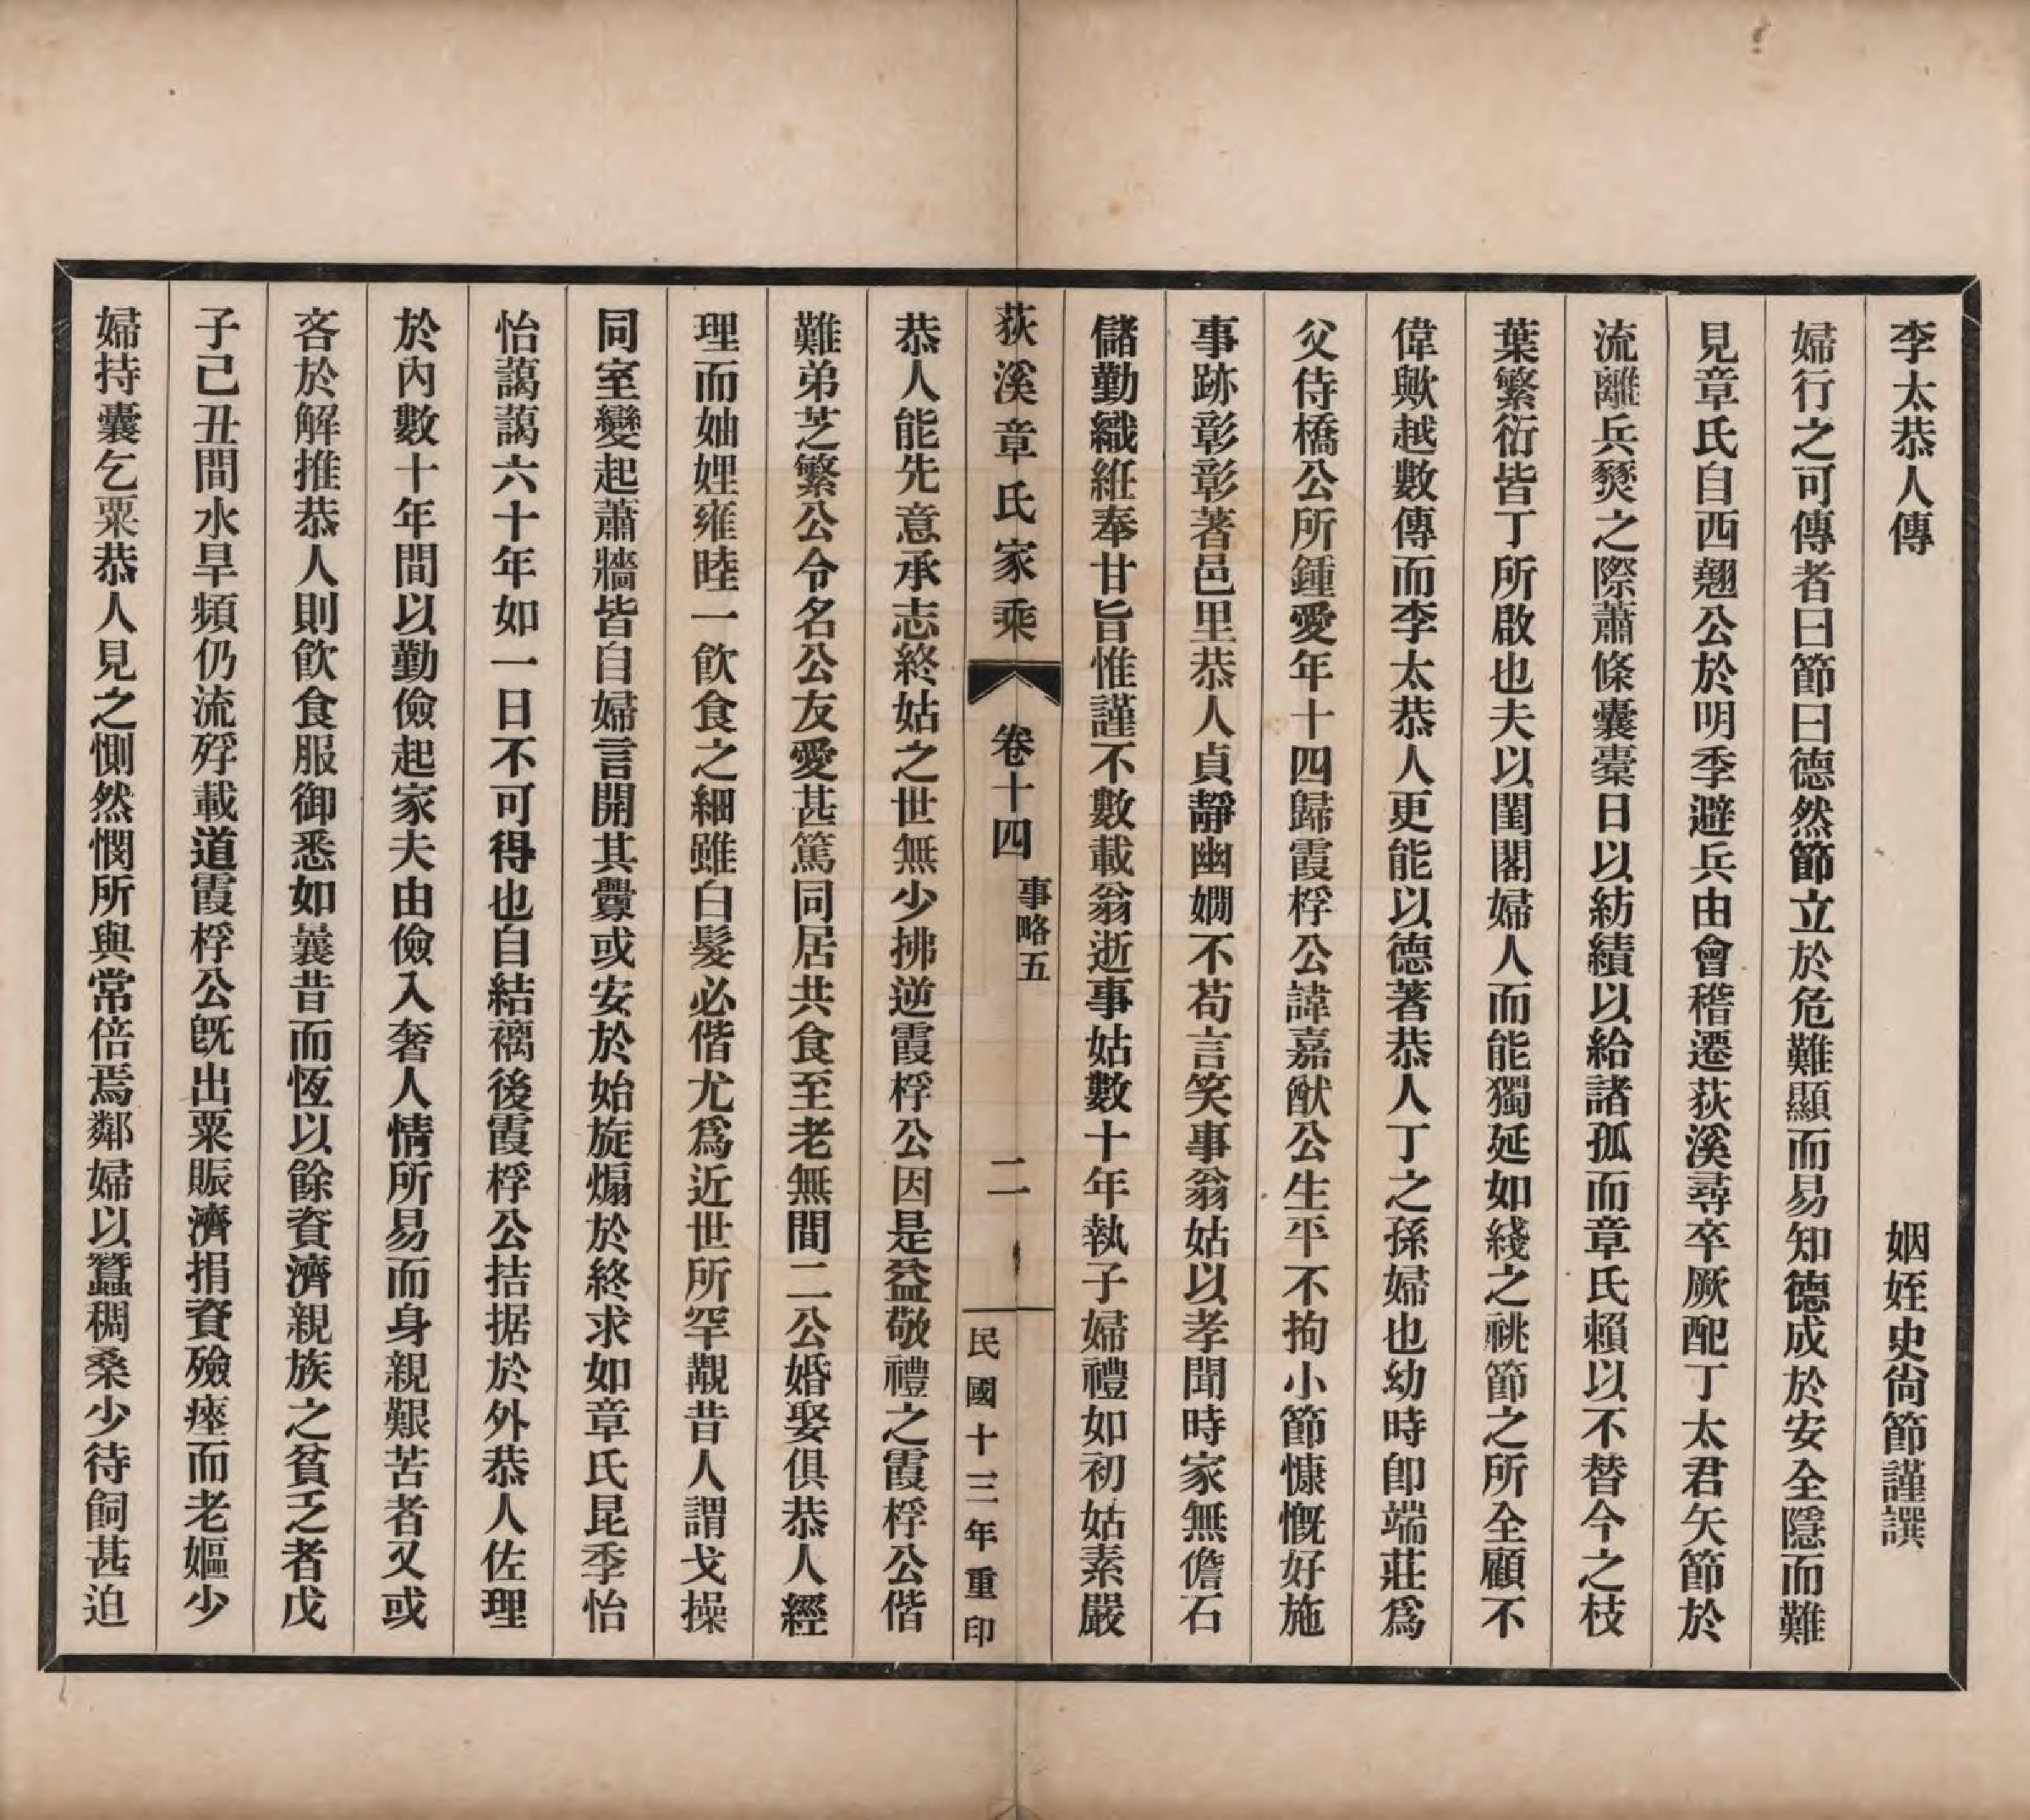 李太恭人傳　姻姪史尙節謹譔
婦行之可傳者曰節曰德然節立於危難顯而易知德成於安全隱而難
見章氏自西翹公於明季避兵由會稽遷荻溪尋卒厥配丁太君矢節於
流離兵燹之際蕭條囊橐日以紡績以給諸孤而章氏賴以不替今之枝
葉繁衍皆丁所啟也夫以閨閣婦人而能獨延如綫之祧節之所全顧不
偉歟越數傳而李太恭人更能以德著恭人丁之孫婦也幼時卽端莊爲
父侍橋公所鍾愛年十四歸霞桴公諱嘉猷公生平不拘小節慷慨好施
事跡彰彰著邑里恭人貞靜幽嫺不苟言笑事翁姑以孝聞時家無儋石
儲勤織絍奉甘旨惟謹不數載翁逝事姑數十年執子婦禮如初姑素嚴
荻溪章氏家乘　卷十四　事略五　二　民國十三年重印
恭人能先意承志終姑之世無少拂逆霞桴公因是益敬禮之霞桴公偕
難弟芝繁公令名公友愛甚篤同居共食至老無間二公婚娶俱恭人經
理而妯娌雍睦一飮食之細雖白髮必偕尤爲近世所罕觀昔人謂戈操
同室變起蕭牆皆自婦言開其釁或安於始旋煽於終求如章氏昆季怡
怡藹藹六十年如一日不可得也自結褵後霞桴公拮据於外恭人佐理
於內數十年間以勤儉起家夫由儉入奢人情所易而身親艱苦者又或
吝於解推恭人則飮食服御悉如曩昔而恆以餘資濟親族之貧乏者戊
子己丑間水旱頻仍流殍載道霞桴公旣出粟賑濟捐資殮瘞而老嫗少
婦持囊乞粟恭人見之惻然憫所與常倍焉鄰婦以蠶稠桑少待飼甚迫